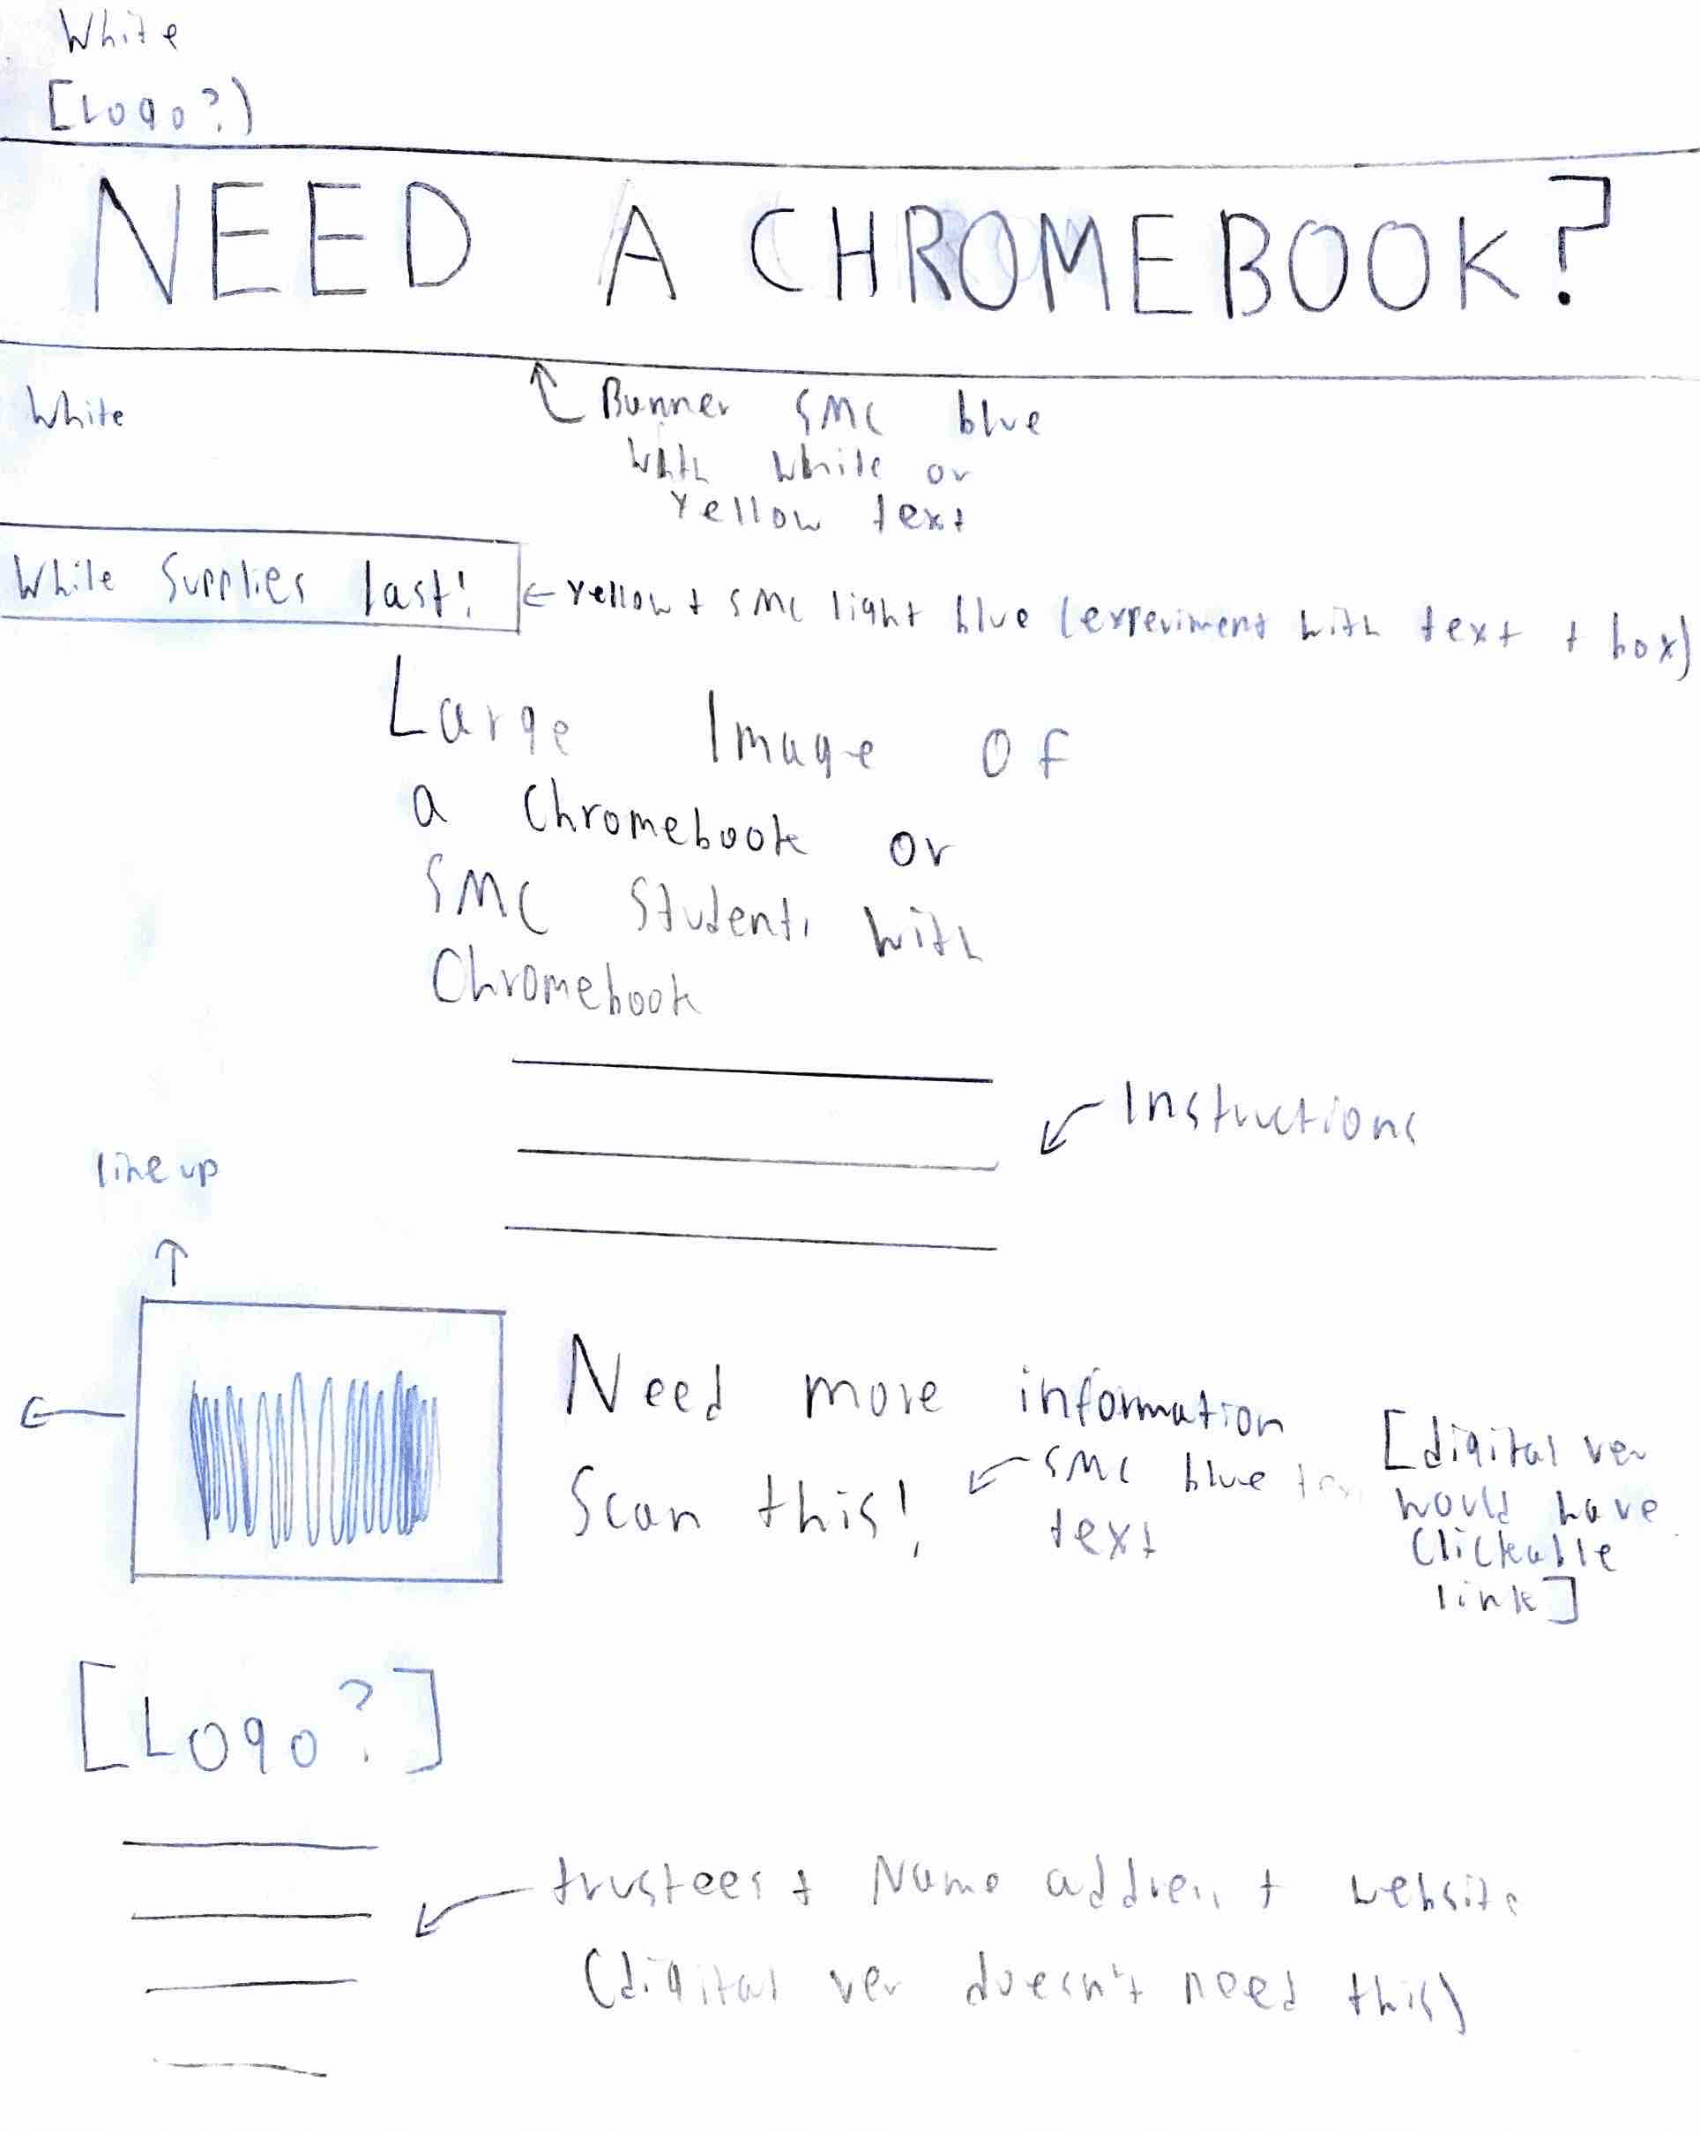 White
[Logo?)
NEED A CHROMEBOOK?
White
Banner SMC blue
with white or
Yellow text
While Supplies last!
Yellow + SMC light blue (experiment with text + box)
Large Image of
a Chromebook or
SMC Students with
Chromebook
Instructions
line up
Need more information
Scan this!
SMC blue
text
[digital ver
would have
Clickable
link]
[Logo?]
trustees + Name address + website
(digital ver doesn't need this)